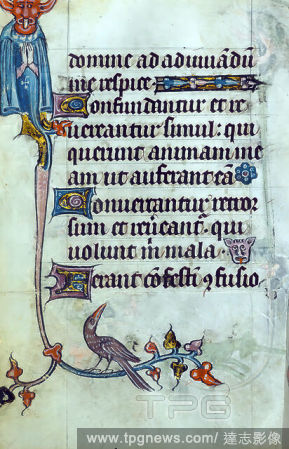 domine ad adiuuādū
me respice
Confundantur et re
uereantur simul: qui
querunt animam me
am ut auferant eā
Conuertantur retror
sum et reūeant̄. qui
uolunt m̄ mala.
Ferant cōfestī ꝯfusio
TPG
www.tpgnews.com/ 達志影像